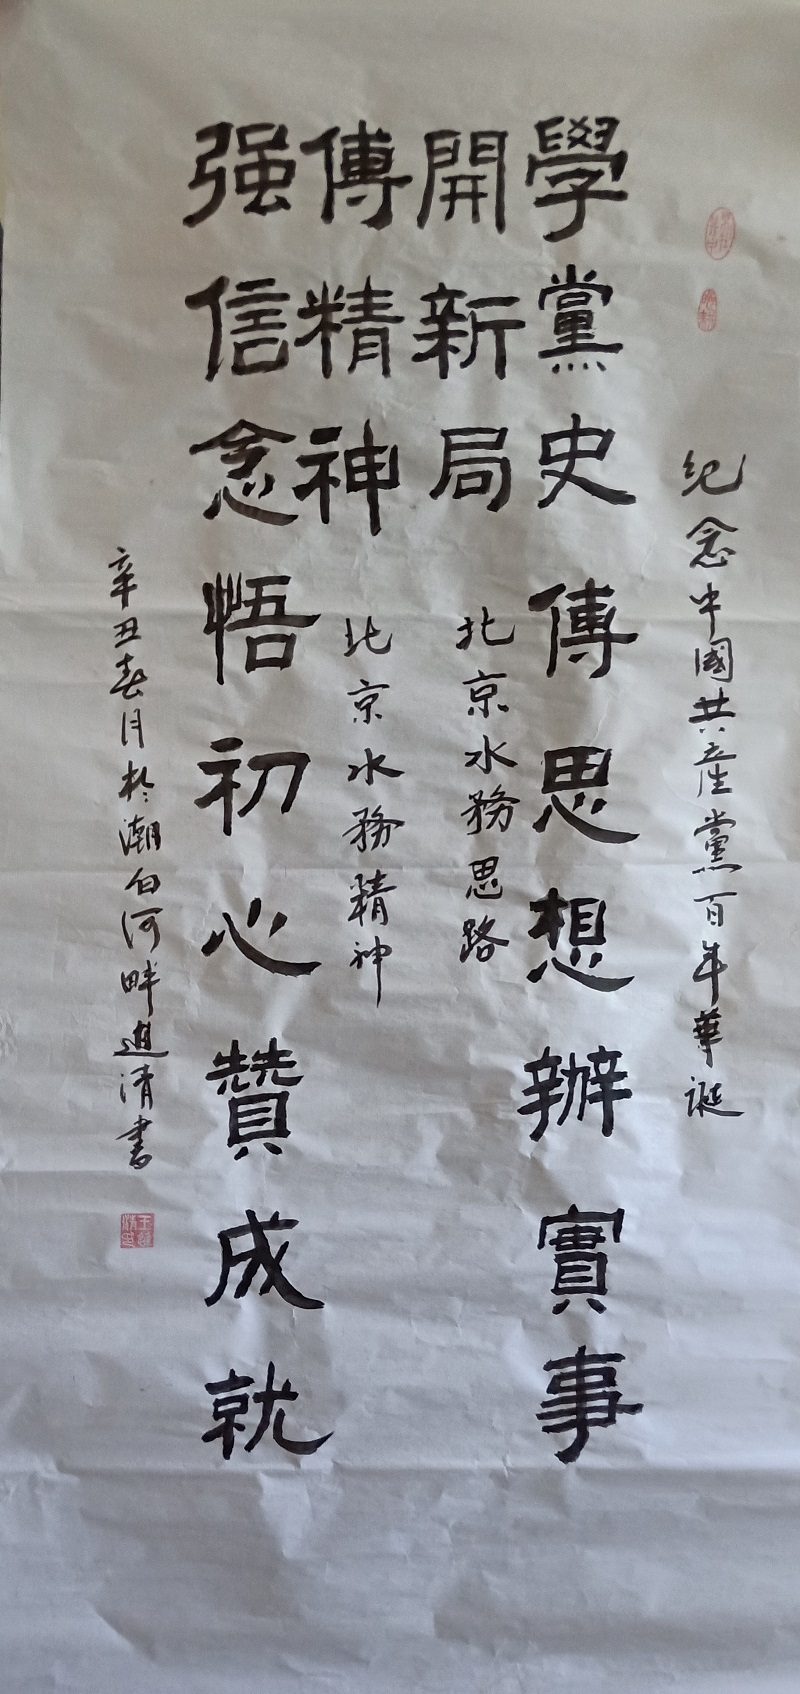 纪念中國共産黨百年華誕
學黨史傳思想辦實事
開新局
北京水務思路
傳精神
北京水務精神
强信念悟初心贊成就
辛丑春月於潮白河畔進清書